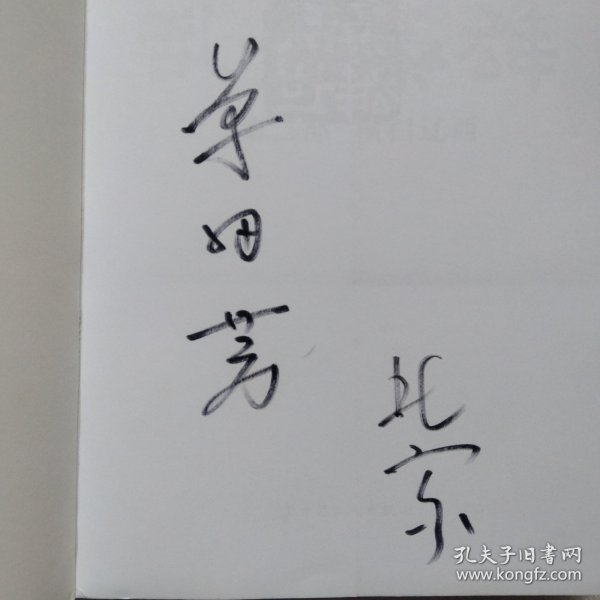 单田芳
北京
孔夫子旧书网
www.kongfz.com